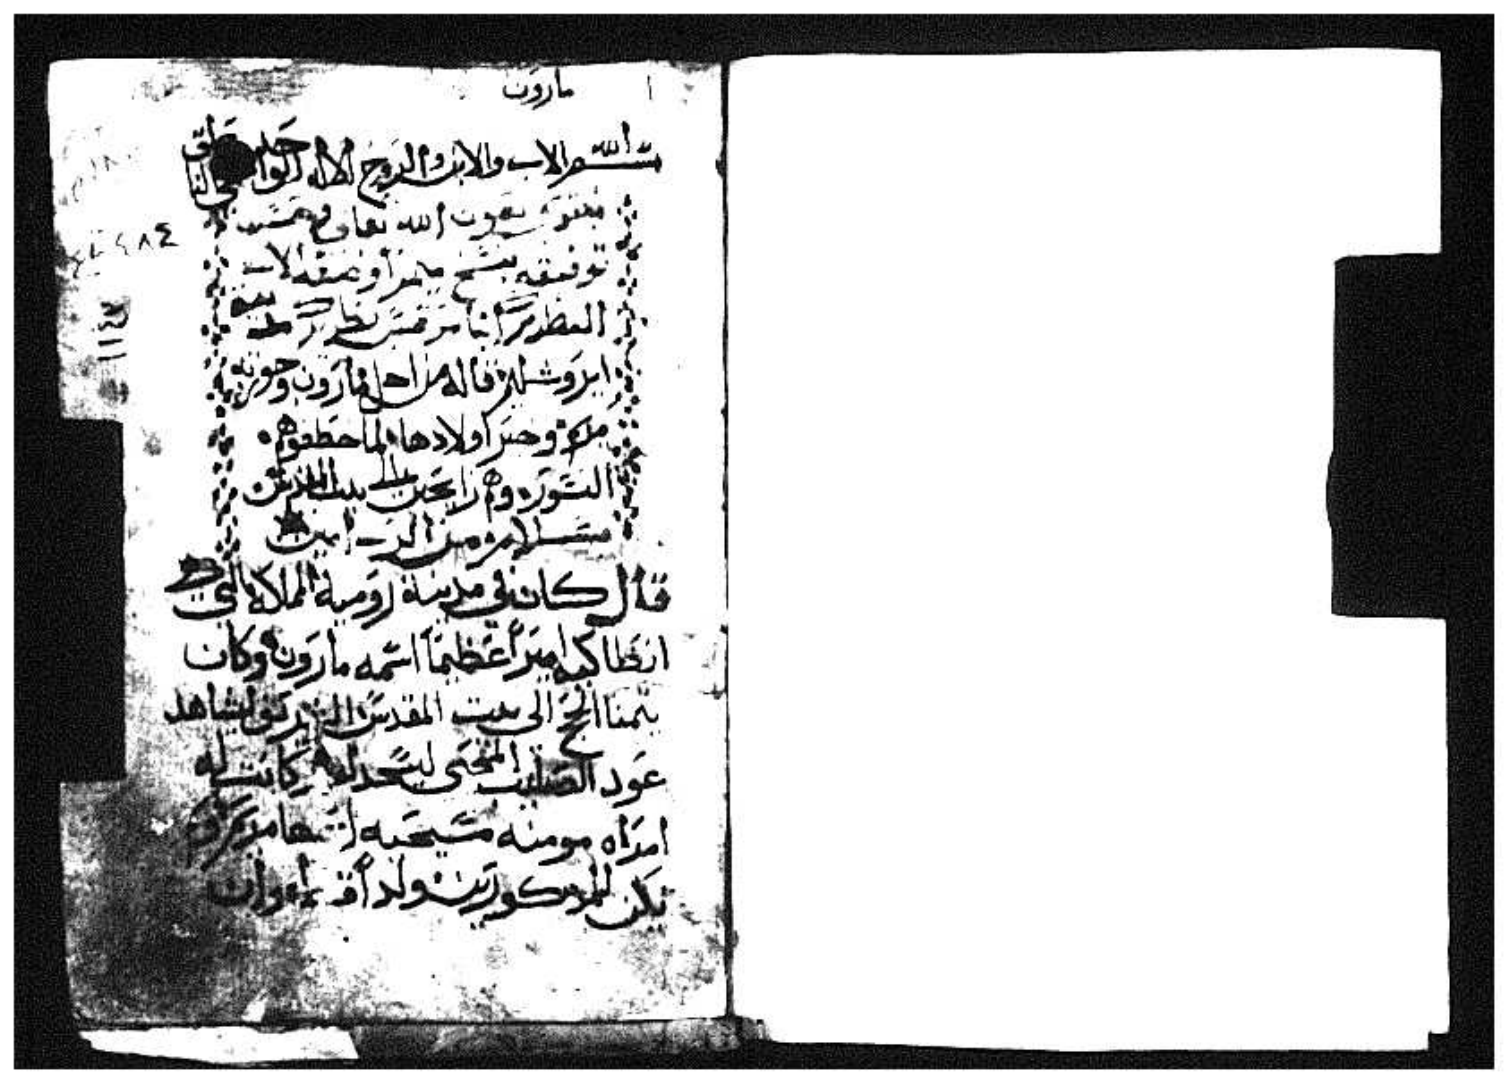 مارون
بسم الله الاب والابن والروح الاله الواحد
نبتدى بعون الله تعالى وحسن
توفيقه بنسخ ميمر وضعه الاب
المطران انبا مرقس بطريرك
ايروشليم قاله من اجل مارون وحورته
مريم وخبر اولادها لما خطفوهم
النسوره وهم راجعين الى بيت المقدس
بسلام من الرب امين
قال كان في مدينة رومية المملكة التي هي
انطاكيه اميرا عظيما اسمه مارون وكان
يتمنا الحج الى بيت المقدس الشريف ليشاهد
عود الصليب المحيى ليسجد له وكانت له
امراه مومنه مسيحيه اسمها مريم ولم
يكن للمذكورين ولد